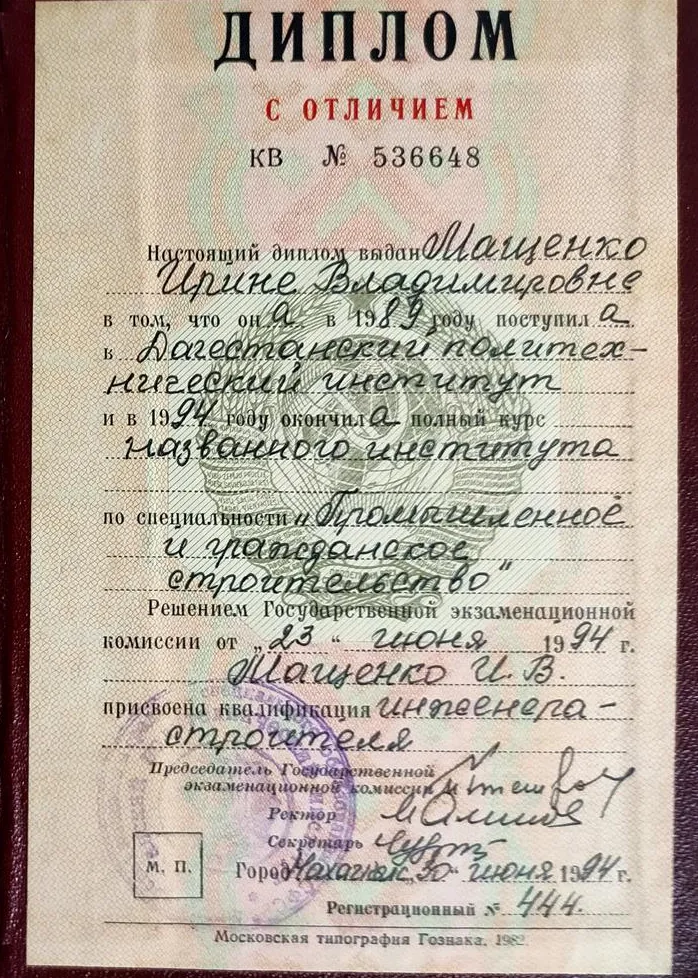 ДИПЛОМ
С ОТЛИЧИЕМ
КВ № 536648
Настоящий диплом выдан Мащенко
Ирине Владимировне
в том, что он а в 1989 году поступил а
в Дагестанский политех-
нический институт
и в 1994 году окончил а полный курс
названного института
по специальности „Промышленное
и гражданское
строительство"
Решением Государственной экзаменационной
комиссии от „23" июня 1994 г.
Мащенко И. В.
присвоена квалификация инженера-
строителя
Председатель Государственной
экзаменационной комиссии
Ректор
Секретарь
Город „30" июня 1994 г.
М. П.
Регистрационный № 444.
Московская типография Гознака. 1982.